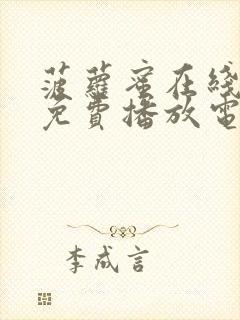 菠蘿蜜在綫
免費播放電
李成言